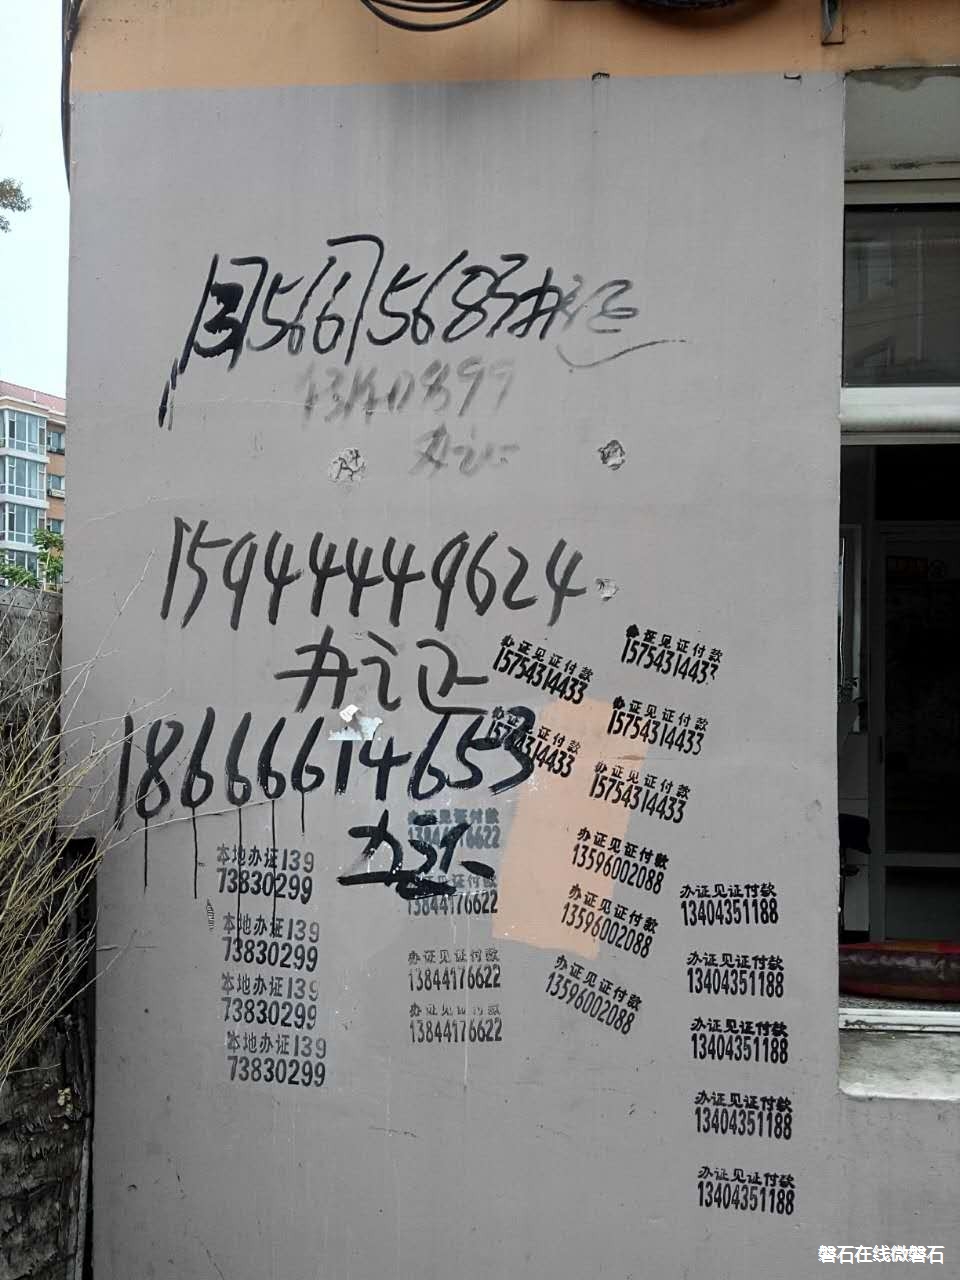 15944449624
办证
18666614653
办证
办证见证付款
15754314433
办证见证付款
15754314433
办证见证付款
15754314433
办证见证付款
15754314433
办证见证付款
15754314433
本地办证139
73830299
本地办证139
73830299
本地办证139
73830299
本地办证139
73830299
办证见证付款
13844176622
办证见证付款
13844176622
办证见证付款
13844176622
办证见证付款
13844176622
办证见证付款
13596002088
办证见证付款
13596002088
办证见证付款
13596002088
办证见证付款
13404351188
办证见证付款
13404351188
办证见证付款
13404351188
办证见证付款
13404351188
办证见证付款
13404351188
磐石在线微磐石